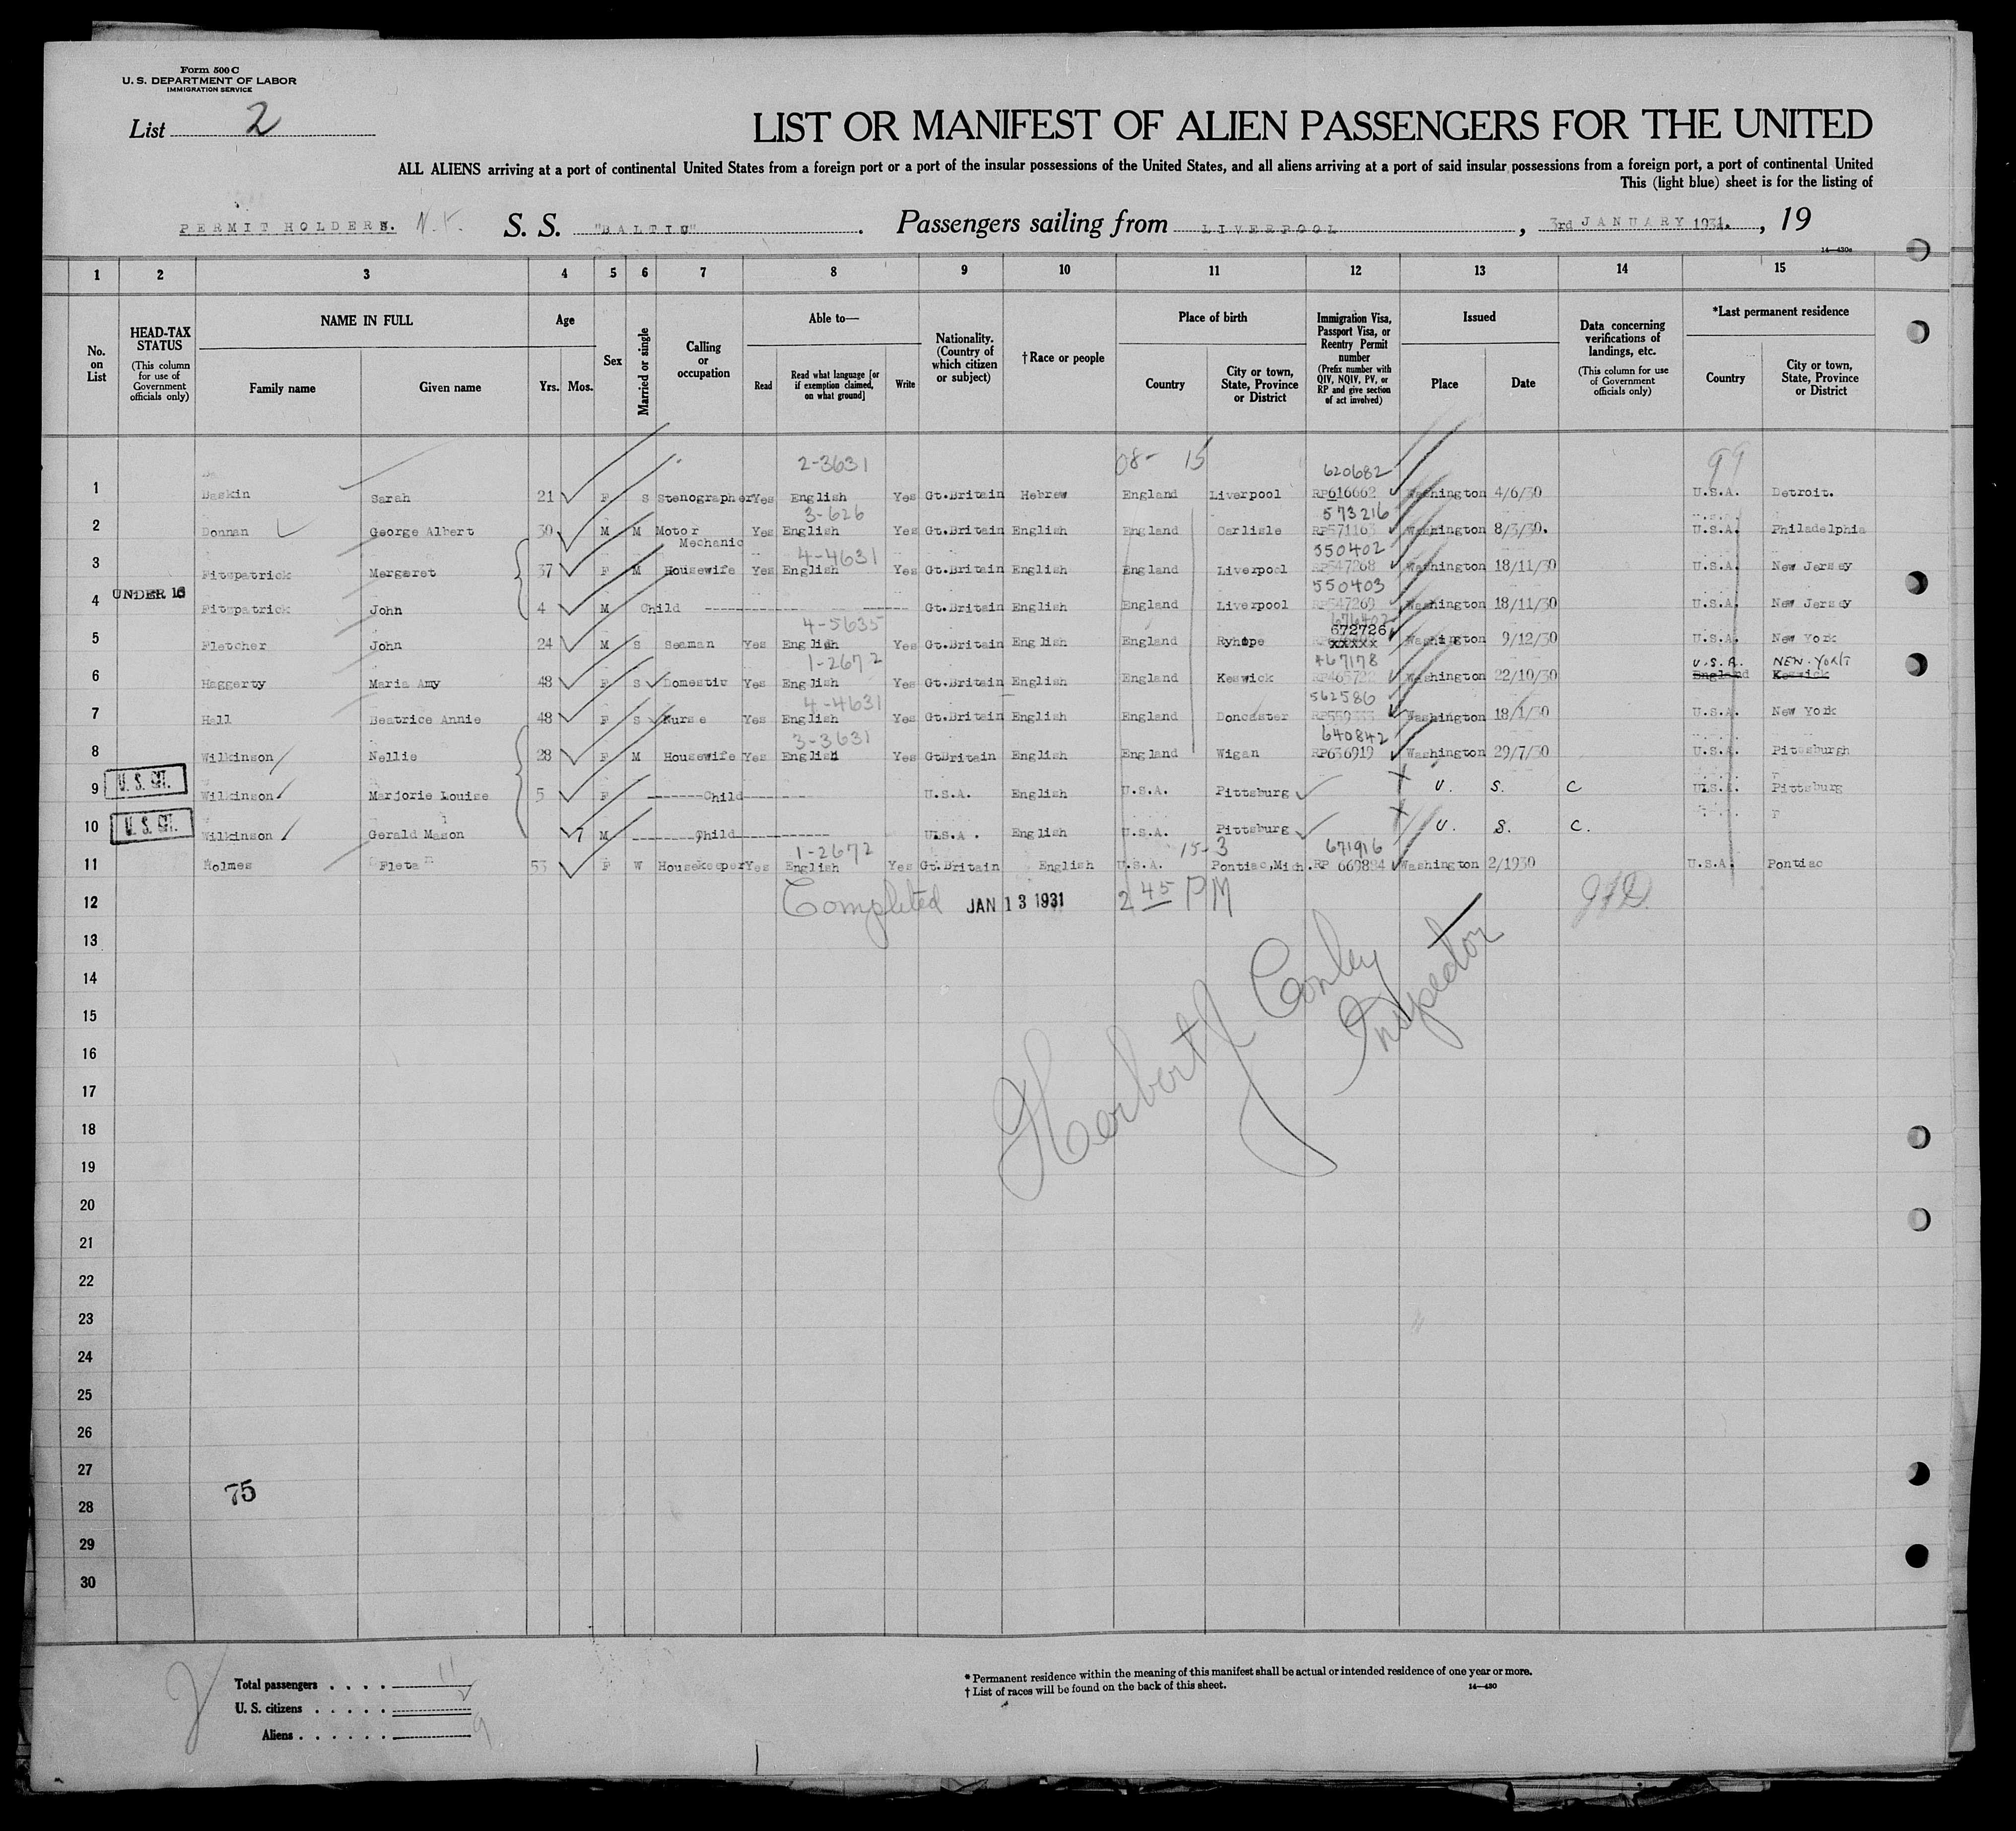 Form 500 C
U. S. DEPARTMENT OF LABOR
IMMIGRATION SERVICE
List 2
LIST OR MANIFEST OF ALIEN PASSENGERS FOR THE UNITED
ALL ALIENS arriving at a port of continental United States from a foreign port or a port of the insular possessions of the United States, and all aliens arriving at a port of said insular possessions from a foreign port, a port of continental United
This (light blue) sheet is for the listing of
PERMIT HOLDERS. S. S. "BALTIC". Passengers sailing from LIVERPOOL, 3rd JANUARY 1931., 19
14—430c
1 2 3 4 5 6 7 8 9 10 11 12 13 14 15
No. on List
HEAD-TAX STATUS (This column for use of Government officials only)
NAME IN FULL Family name Given name
Age Yrs. Mos.
Sex
Married or single
Calling or occupation
Able to— Read Read what language [or if exemption claimed, on what ground] Write
Nationality. (Country of which citizen or subject)
† Race or people
Place of birth Country City or town, State, Province or District
Immigration Visa, Passport Visa, or Reentry Permit number (Prefix number with QIV, NQIV, PV, or RP and give section of act involved)
Issued Place Date
Data concerning verifications of landings, etc. (This column for use of Government officials only)
*Last permanent residence Country City or town, State, Province or District
2-3631 08- 15 620682 99
1 Baskin Sarah 21 F S Stenographer Yes English Yes Gt.Britain Hebrew England Liverpool RP616662 Washington 4/6/30 U.S.A. Detroit.
3-626 573216
2 Donnan George Albert 30 M M Motor Mechanic Yes English Yes Gt.Britain English England Carlisle RP571163 Washington 8/3/30. U.S.A. Philadelphia
4-4631 550402
3 Fitzpatrick Margaret 37 F M Housewife Yes English Yes Gt.Britain English England Liverpool RP547268 Washington 18/11/30 U.S.A. New Jersey
550403
4 UNDER 16 Fitzpatrick John 4 M Child Gt.Britain English England Liverpool RP547269 Washington 18/11/30 U.S.A. New Jersey
4-5635 676402 672726
5 Fletcher John 24 M S Seaman Yes English Yes Gt.Britain English England Ryhope XXXXX Washington 9/12/30 U.S.A. New York
1-2672 467178 U.S.A. NEW-YORK
6 Haggerty Maria Amy 48 F S Domestic Yes English Yes Gt.Britain English England Keswick Washington 22/10/30 England Keswick
4-4631 562586
7 Hall Beatrice Annie 48 F S Nurse Yes English Yes Gt.Britain English England Doncaster Washington 18/1/30 U.S.A. New York
3-3631 640842
8 Wilkinson Nellie 28 F M Housewife Yes English Yes Gt.Britain English England Wigan RP636919 Washington 29/7/30 U.S.A. Pittsburgh
9 U. S. CIT. Wilkinson Marjorie Louise 5 F Child U.S.A. English U.S.A. Pittsburg U. S. C U.S.A. Pittsburg
10 U. S. CIT. Wilkinson Gerald Mason 7 M Child U.S.A. English U.S.A. Pittsburg U. S. C.
1-2672 15-3 671916
11 Holmes Fleta 53 F W Housekeeper Yes English Yes Gt.Britain English U.S.A. Pontiac, Mich. RP 669884 Washington 2/1930 U.S.A. Pontiac
12 Completed JAN 13 1931 2 45 PM
13
14
15
16
Herbert J Conley
Inspector
17
18
19
20
21
22
23
24
25
26
27
28
75
29
30
Total passengers . . . . 11
U. S. citizens . . . . . 2
Aliens . . . . . . 9
* Permanent residence within the meaning of this manifest shall be actual or intended residence of one year or more.
† List of races will be found on the back of this sheet.
14—430